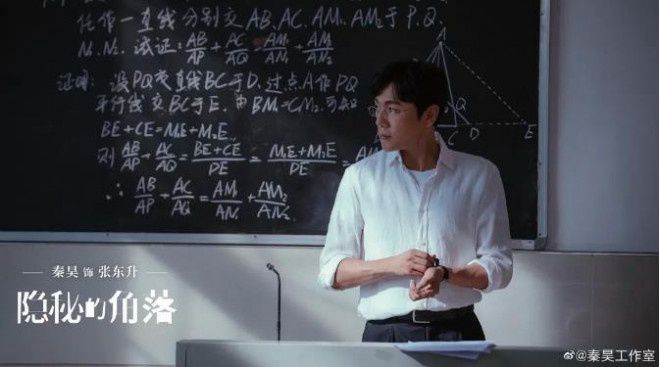 任作一直线分别交 AB、AC、AM₁、AM₂于 P、Q、
N₁、N₂. 试证: AB/AP + AC/AQ = AM₁/AN₁ + AM₂/AN₂
证明: 设PQ交直线BC于D, 过点A作PQ
平行线交BC于E, 由BM₁=CM₂, 可知
BE+CE=M₁E+M₂E
则 AB/AP + AC/AQ = (BE+CE)/DE = (M₁E+M₂E)/DE =
∴ AB/AP + AC/AQ = AM₁/AN₁ + AM₂/AN₂
A
Q
C
D
E
秦昊 饰 张东升
隐秘的角落
@秦昊工作室